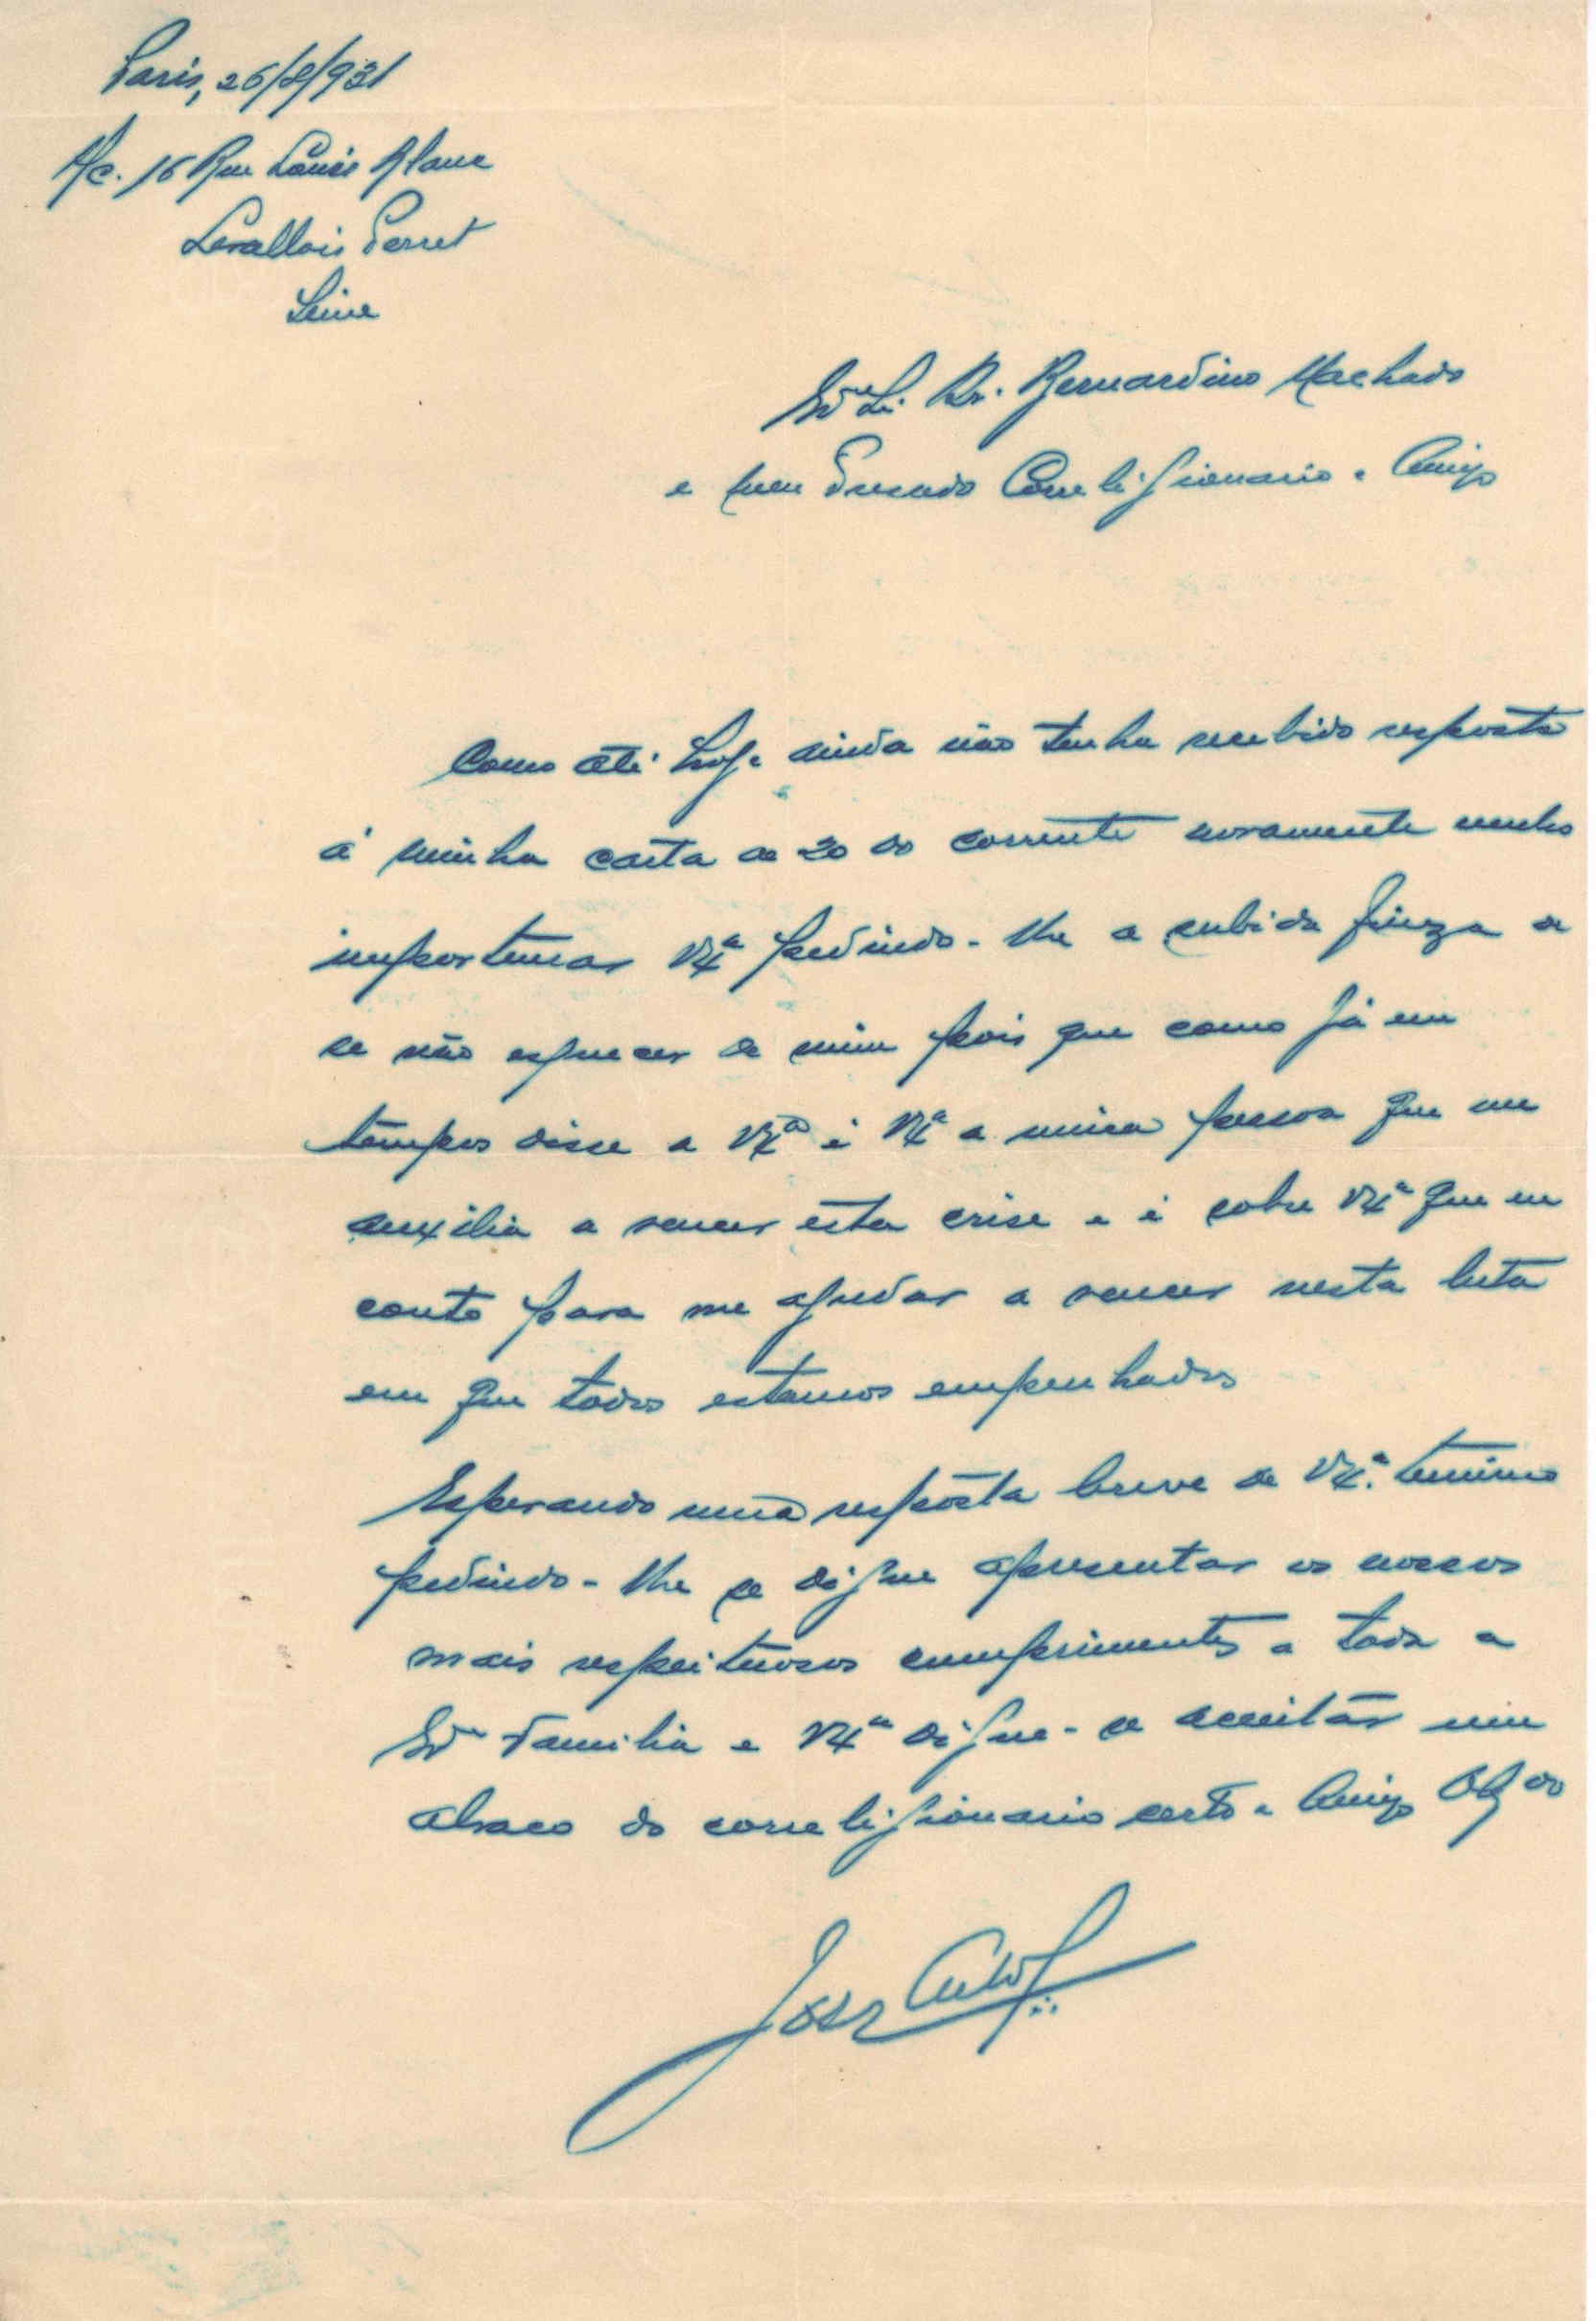 Paris, 26/8/931
A/c. 16 Rue Louis Blanc
Levallois Perret
Seine
Exmº Sr. Dr. Bernardino Machado
e meu Prezado Correligionario e Amigo
Como até hoje ainda não tenha recebido resposta
á minha carta de 20 do corrente novamente venho
importunar V. Exª pedindo-lhe a subida fineza de
se não esquecer de mim pois que como já em
tempos disse a V. Exª é V. Exª a unica pessoa que me
auxilia a vencer esta crise e é sobre V. Exª que eu
conto para me ajudar a vencer nesta luta
em que todos estamos empenhados
Esperando uma resposta breve de V. Exª. termino
pedindo-lhe se digne apresentar os nossos
mais respeitosos cumprimentos a toda a
Exmª Familia e V. Exª digne-se aceitar um
abraço do correligionario certo e Amigo Obgdo
José